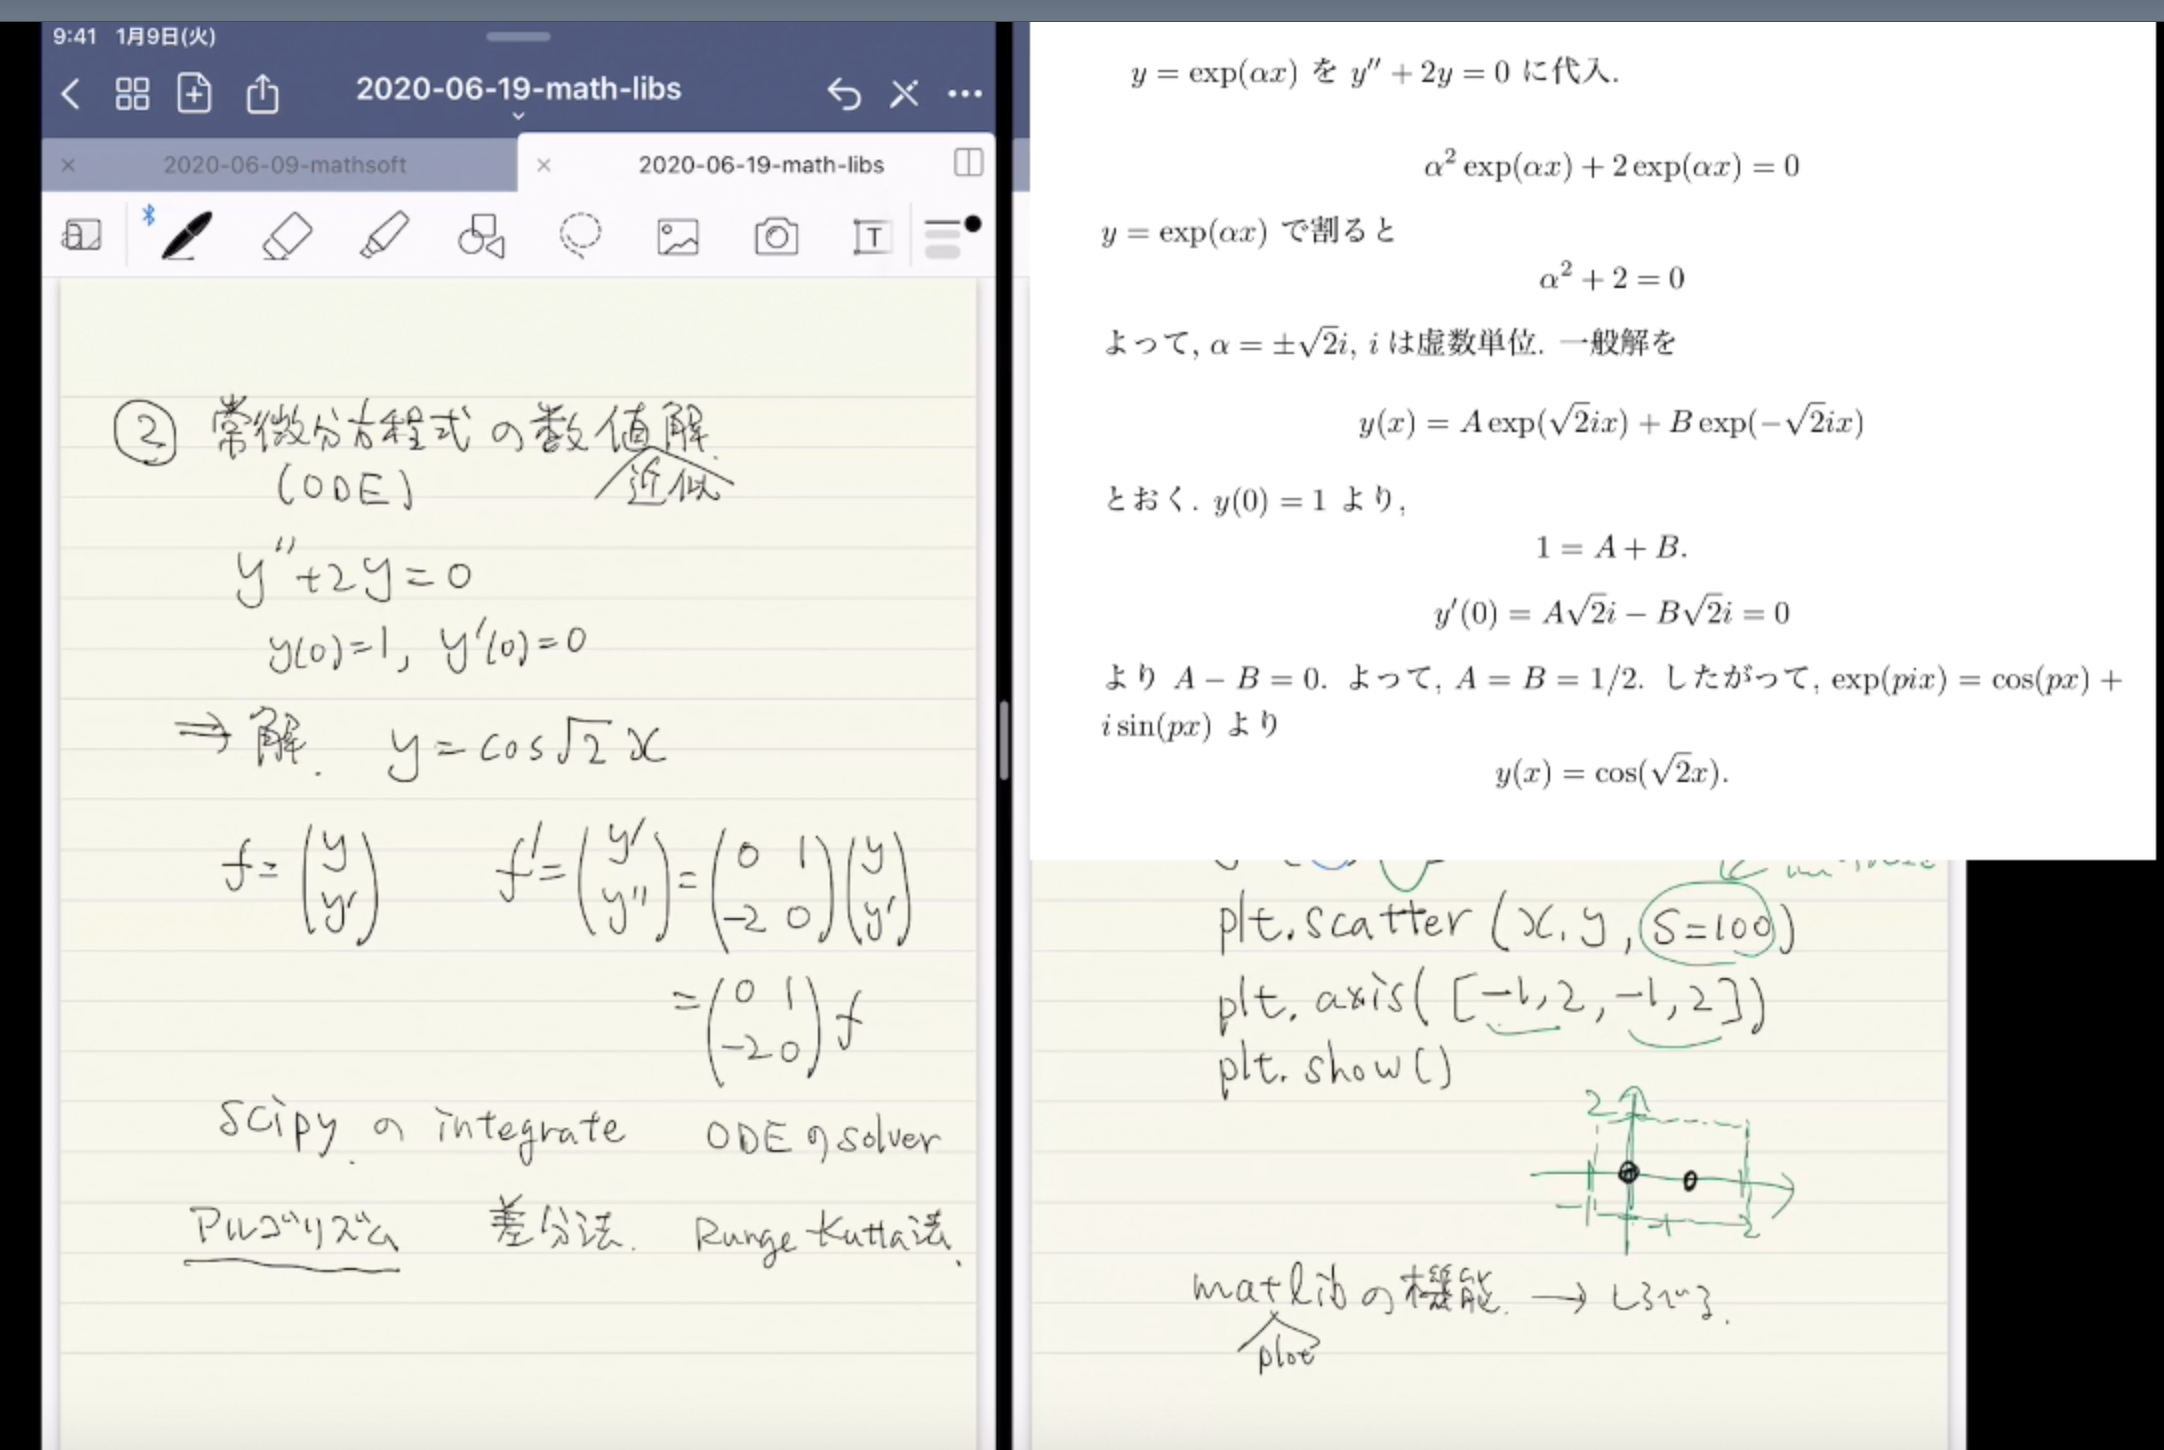 9:41 1月9日(火)
2020-06-19-math-libs
2020-06-09-mathsoft
2020-06-19-math-libs
② 常微分方程式の数値解.
(ODE) 近似
y''+2y=0
y(0)=1, y'(0)=0
⇒ 解. y=cos√2 x
f=(y y') f'=(y' y'')=(0 1 -2 0)(y y')
=(0 1 -2 0)f
Scipy の integrate ODEのsolver
アルゴリズム 差分法. Runge Kutta法.
y = exp(αx) を y'' + 2y = 0 に代入.
α² exp(αx) + 2 exp(αx) = 0
y = exp(αx) で割ると
α² + 2 = 0
よって, α = ±√2i, i は虚数単位. 一般解を
y(x) = A exp(√2ix) + B exp(−√2ix)
とおく. y(0) = 1 より,
1 = A + B.
y'(0) = A√2i − B√2i = 0
より A − B = 0. よって, A = B = 1/2. したがって, exp(pix) = cos(px) +
i sin(px) より
y(x) = cos(√2x).
plt.scatter (x, y, S=100)
plt.axis([-1,2,-1,2])
plt.show()
2
-1 -1 2
matlibの機能. → しらべる.
plot